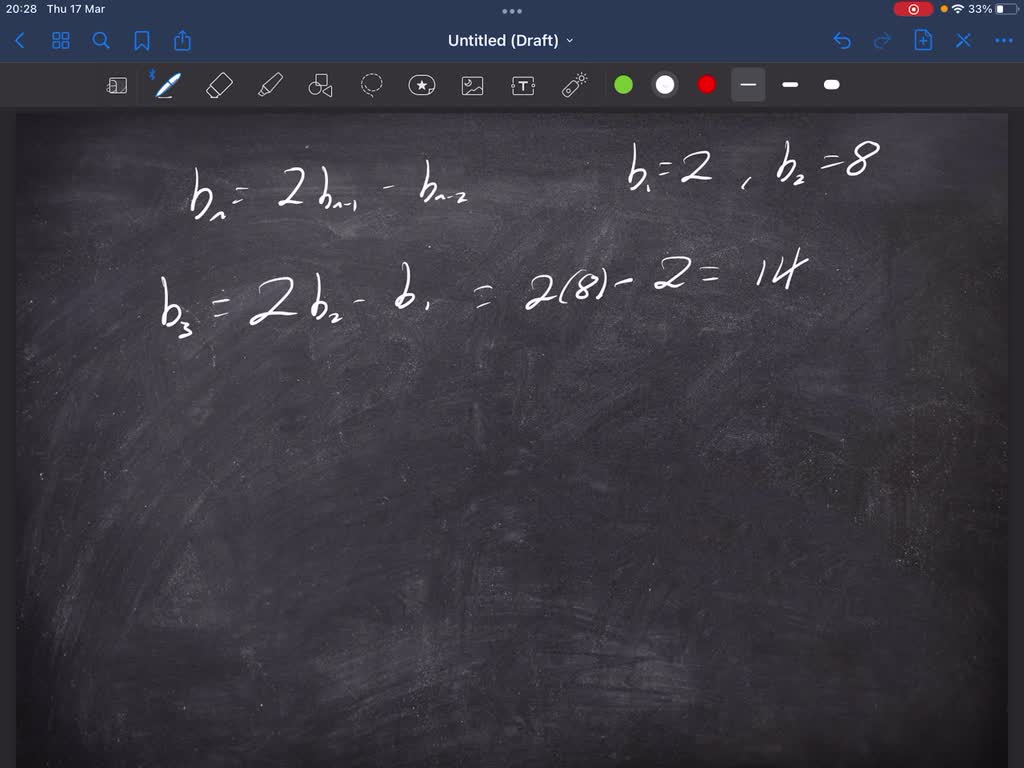 20:28 Thu 17 Mar 33%
Untitled (Draft)
T
bₙ = 2bₙ₋₁ - bₙ₋₂ b₁ = 2 , b₂ = 8
b₃ = 2b₂ - b₁ = 2(8) - 2 = 14